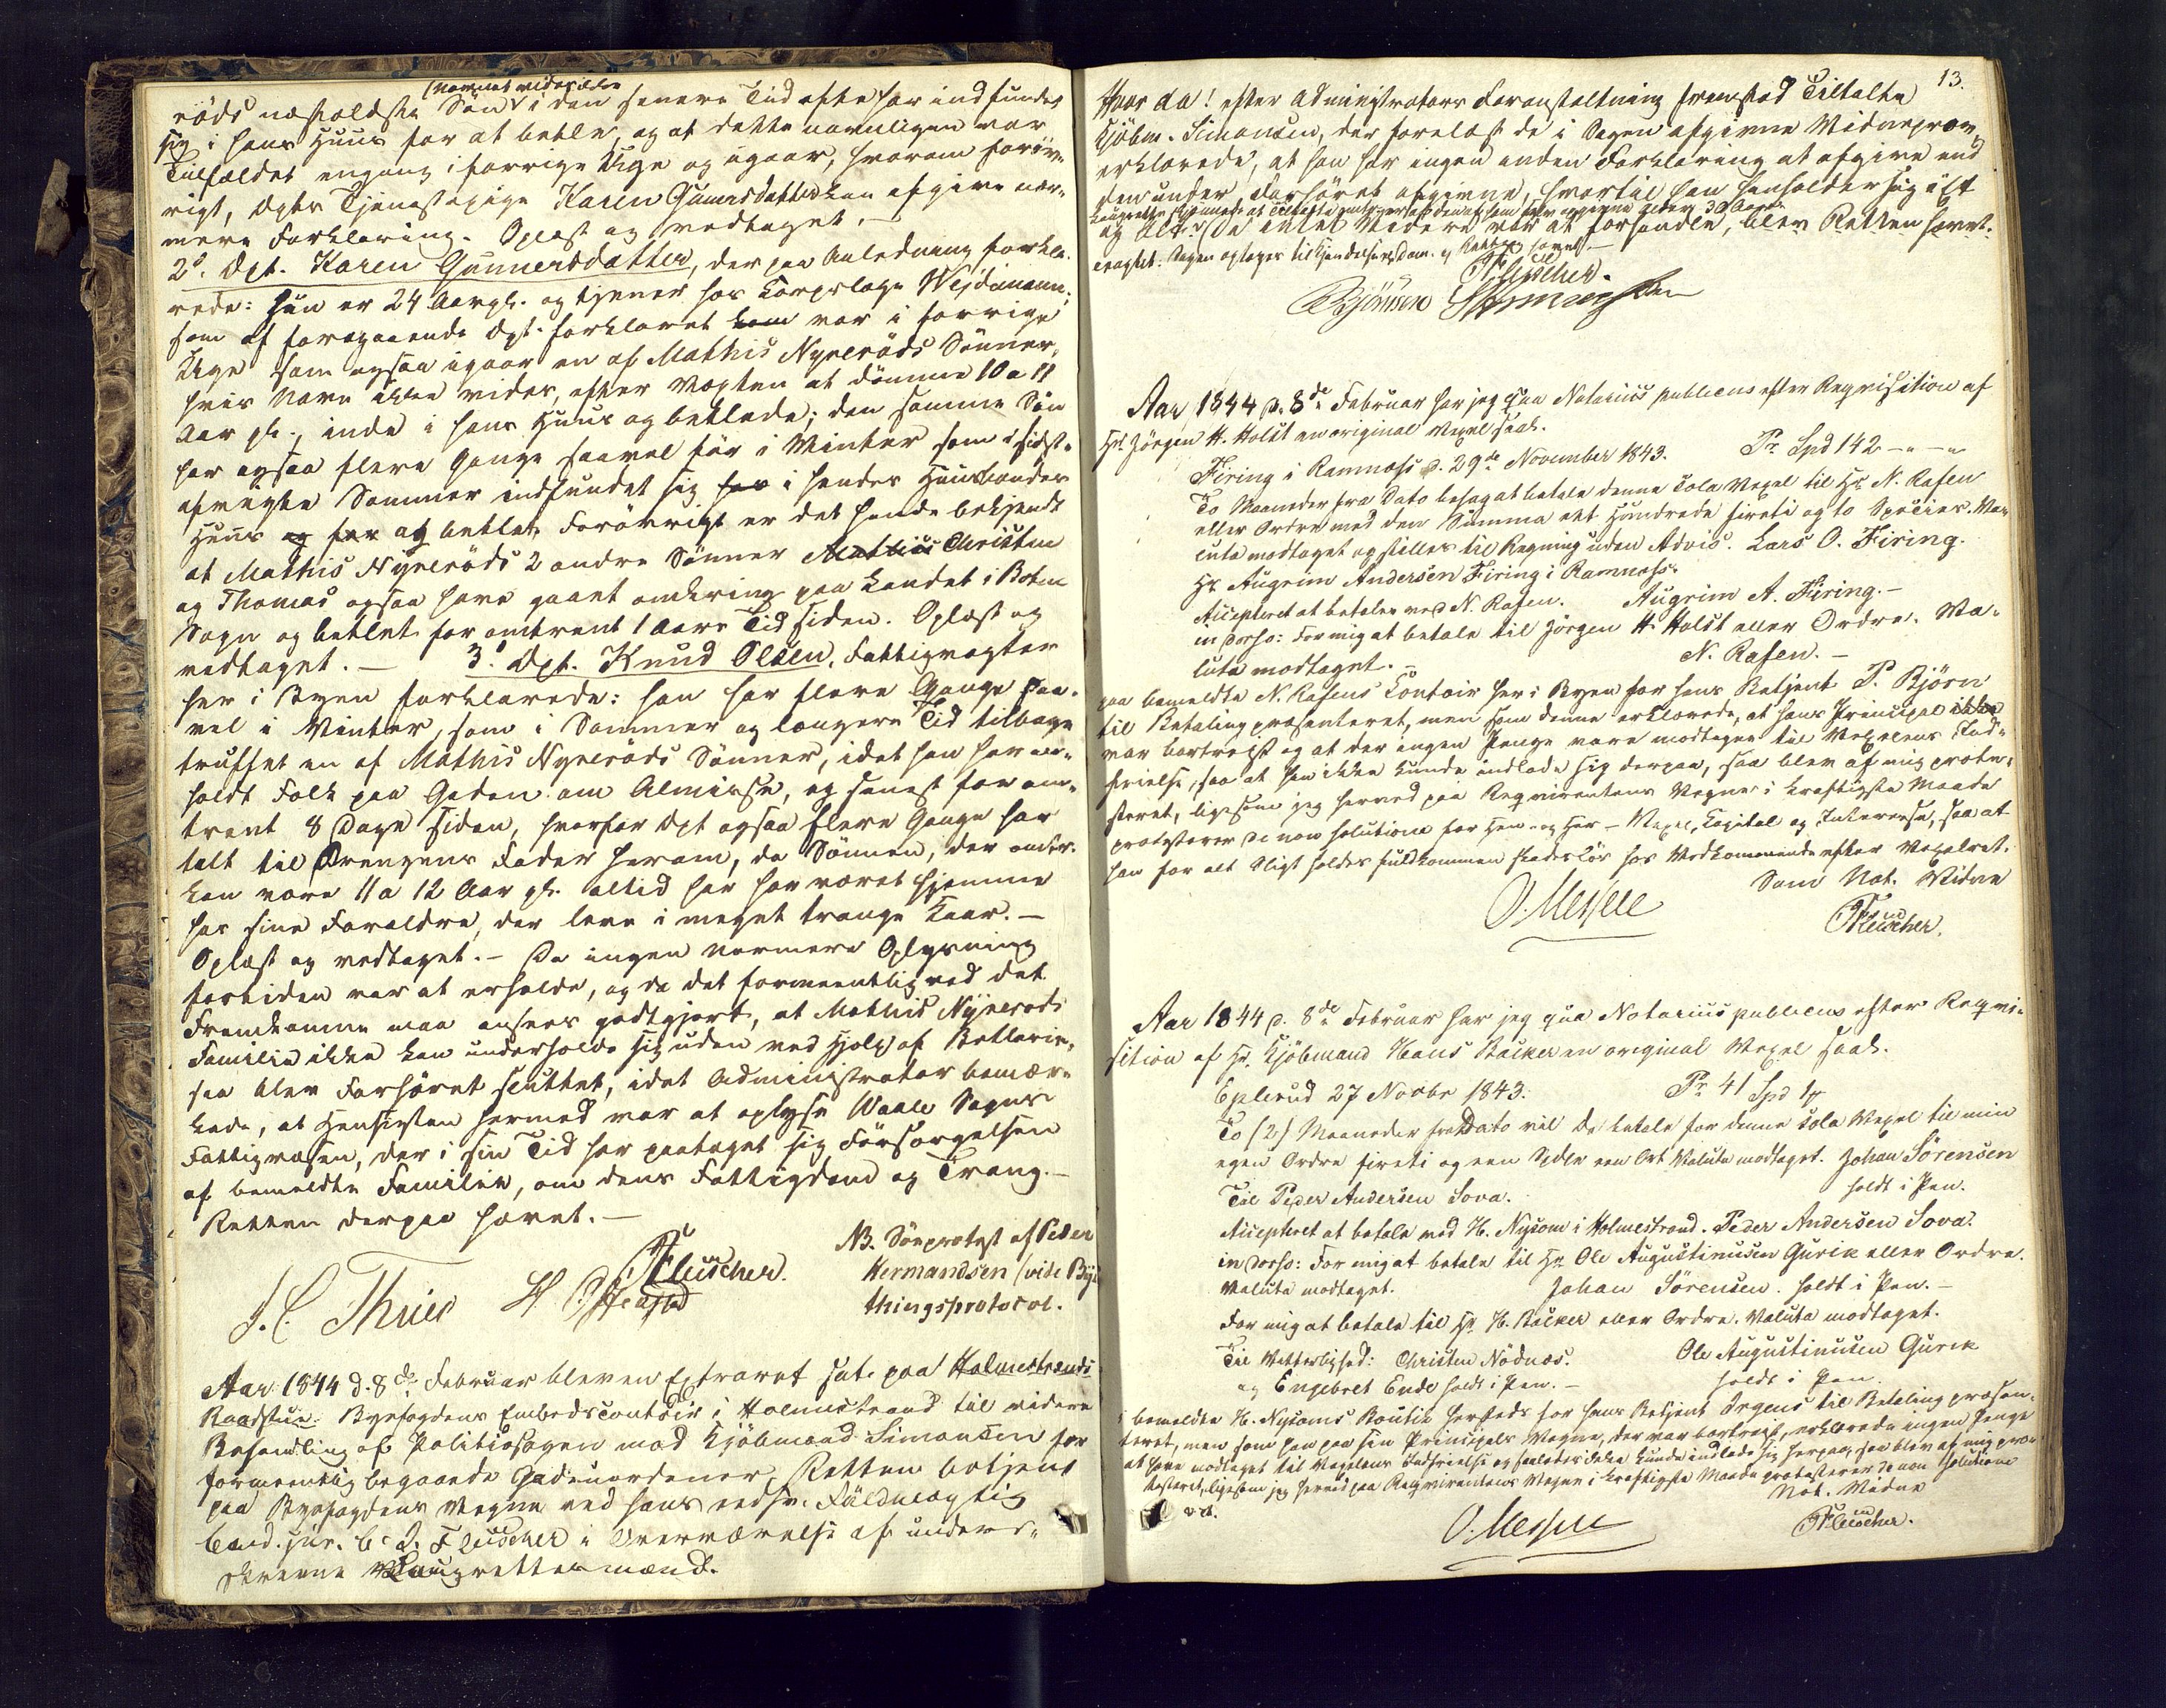 (Navnet vides ikke
röds næstældste Søn i den senere Tid ofte har indfundet
sig i hans Huus for at betle, og at dette navnligen var
Tilfældet engang i forrige Uge og igaar, hvorom forøv-
rigt, Dpts Tjenestepige Karen Gunnersdatter kan afgive nær-
mere Forklaring. Oplæst og vedtaget. —
2d. Dpt. Karen Gunnersdatter, der paa Anledning forkla-
rede: hun er 24 Aar gl. og tjener hos Corpslæge Wejdemann;
som af foregaaende Dpt. forklaret kom var i forrige
Uge som ogsaa igaar en af Mathis Nyrerøds Sønner,
hvis Navn ikke vides, efter Væxten at dømme 10 a 11
Aar gl., inde i hans Huus og betlede; den samme Søn
har ogsaa flere Gange saavel før i Winter som i sidst-
afvigte Sommer indfundet sig for i hendes Huusbondes
Huus og for at betle. Forøvrigt er det hende bekjendt
at Mathis Nyrerøds 2 andre Sønner Mathis Christen
og Thomas ogsaa have gaaet omkring paa Landet i Botne
Sogn og betlet for omtrent 1 Aars Tid siden. Oplæst og
vedtaget. — 3d. Dpt. Knud Olsen, Fattigvægter
her i Byen forklarede: han har flere Gange saa-
vel i Vinter, som i Sommer og længere Tid tilbage
truffet en af Mathis Nyrerøds Sønner, idet han har an-
holdt Folk paa Gaden om Almisse, og senest for om-
trent 8 Dage siden, hvorfor Dpt ogsaa flere Gange har
talt til Drengens Fader herom, da Sønnen, der omtr.
kan være 11 a 12 Aar gl. altid har været hjemme
hos sine Forældre, der leve i meget trange Kaar. —
Oplæst og vedtaget. — Da ingen nærmere Oplysning
fortiden var at erholde, og da det formeentlig ved det
Fremkomne maa ansees godtgjort, at Mathis Nyrerøds
Familie ikke kan underholde sig uden ved Hjelp af Betlerie,
saa blev Forhøret sluttet, idet Administrator bemær-
kede, at Hensigten hermed var at oplyse Waale Sogns
Fattigvæsen, der i sin Tid har paataget sig Forsørgelsen
af bemeldte Familie, om dens Fattigdom og Trang. —
Retten derpaa hævet. —
Fleischer.
J. C. Thue
NB. Söeprotest af Peder
Hermandsen (vide Bye
thingsprotocol.
Aar 1844 d. 8de Februar blev en Extraret sat paa Holmestrands
Raadstue: Byefogdens Embedscontoir i Holmestrand til videre
Behandling af Politiesagen mod Kjøbmand Simonsen for
formeentlig begaaede Gadeuordener, Retten betjent
paa Byefogdens Vegne ved hans edsv. Fuldmægtig
Cand. jur. C. D. Fleischer i Overværelse af unders-
skrevne Laugrettesmænd.
13.
Hvor da! efter Administrators Foranstaltning fremstod Tiltalte
Kjøbm. Simonsen, der forelæst de i Sagen afgivne Vidneprov,
erklærede, at han har ingen anden Forklaring at afgive end
den under Forhøret afgivne, hvortil han henholder sig
og da intet Videre var at forhandle, blev Retten hævet.
eragtet: Sagen optages til Kjendelse eller Dom. og Retten hævet. —
Fleischer.
Bjørnsen
Aar 1844 d. 8de Februar har jeg qua Notarius publicus efter Reqvisition af
Hr. Jörgen H. Holst en original Vexel saal.
Firing i Ramnæs d. 29de November 1843. Pr Spd 142 — „ — „
To Maaneder fra Dato behag at betale denne Sola Vexel til Hr. N. Rafen
eller Ordre med den Summa eet Hundrede firti og to Species. Va-
luta modtaget og stilles til Regning uden Advis. Lars O. Firing.
Hr. Augrim Andersen Firing i Ramnæs.
Accepteret at betales ved N. Rafen. Augrim A. Firing. —
in dorso: For mig at betale til Jörgen H. Holst eller Ordre. Va-
luta modtaget. — N. Rafen. —
paa bemeldte N. Rafens Contoir her i Byen for hans Betjent P. Bjørn
til Betaling præsenteret, men som denne erklærede, at hans Principal ikke
var bortreist og at der ingen Penge vare modtagne til Vexelens Ind-
frielse, saa at han ikke kunde indlade sig derpaa, saa blev af mig prote-
steret, ligesom jeg herved paa Reqvirentens Vegne i kraftigste Maade
protesterer de non solutione for Hen- og Her- Vexel, Capital og Interesse, saa at
han for alt Sligt holdes fuldkommen skadesløs hos Vedkommende efter Vexelret.
O. Messell Som Not. Vidne
Fleischer.
Aar 1844 d. 8de Februar har jeg qua Notarius publicus efter Reqvi-
sition af Hr. Kjøbmand Hans Backer en original Vexel saal.
Eplerud 27 Novbr 1843. Pr 41 Spd 1
To (2) Maaneder fra Dato vil De betale for denne Sola Vexel til min
egen Ordre fireti og een Spdlr een Ort Valuta modtaget. Johan Sörensen
Til Peder Andersen Sova. holdt i Pen.
Accepteret at betale ved H. Nysom i Holmestrand. Peder Andersen Sova.
in dorso: For mig at betale til Hr. Ole Augustinusen Gurik eller Ordre.
Valuta modtaget. Johan Sörensen holdt i Pen. —
For mig at betale til Hr. H. Backer eller Ordre. Valuta modtaget.
Til Vitterlighed: Christen Nödnæs. Ole Augustinusen Gurik
og Engebret Ende holdt i Pen. — holdt i Pen.
i bemeldte H. Nysoms Boutik hersteds for hans Betjent Irgens til Betaling præsen-
teret, men som han paa sin Principals Vegne, der var bortreist, erklærede ingen Penge
at have modtaget til Vexelens Indfrielse og saaledes ikke kunde indlade sig herpaa, saa blev af mig pro-
testeret, ligesom jeg herved paa Reqvirentens Vegne i kraftigste Maade protesterer de non solutione
O. Messell Not. Vidne
Fleischer.